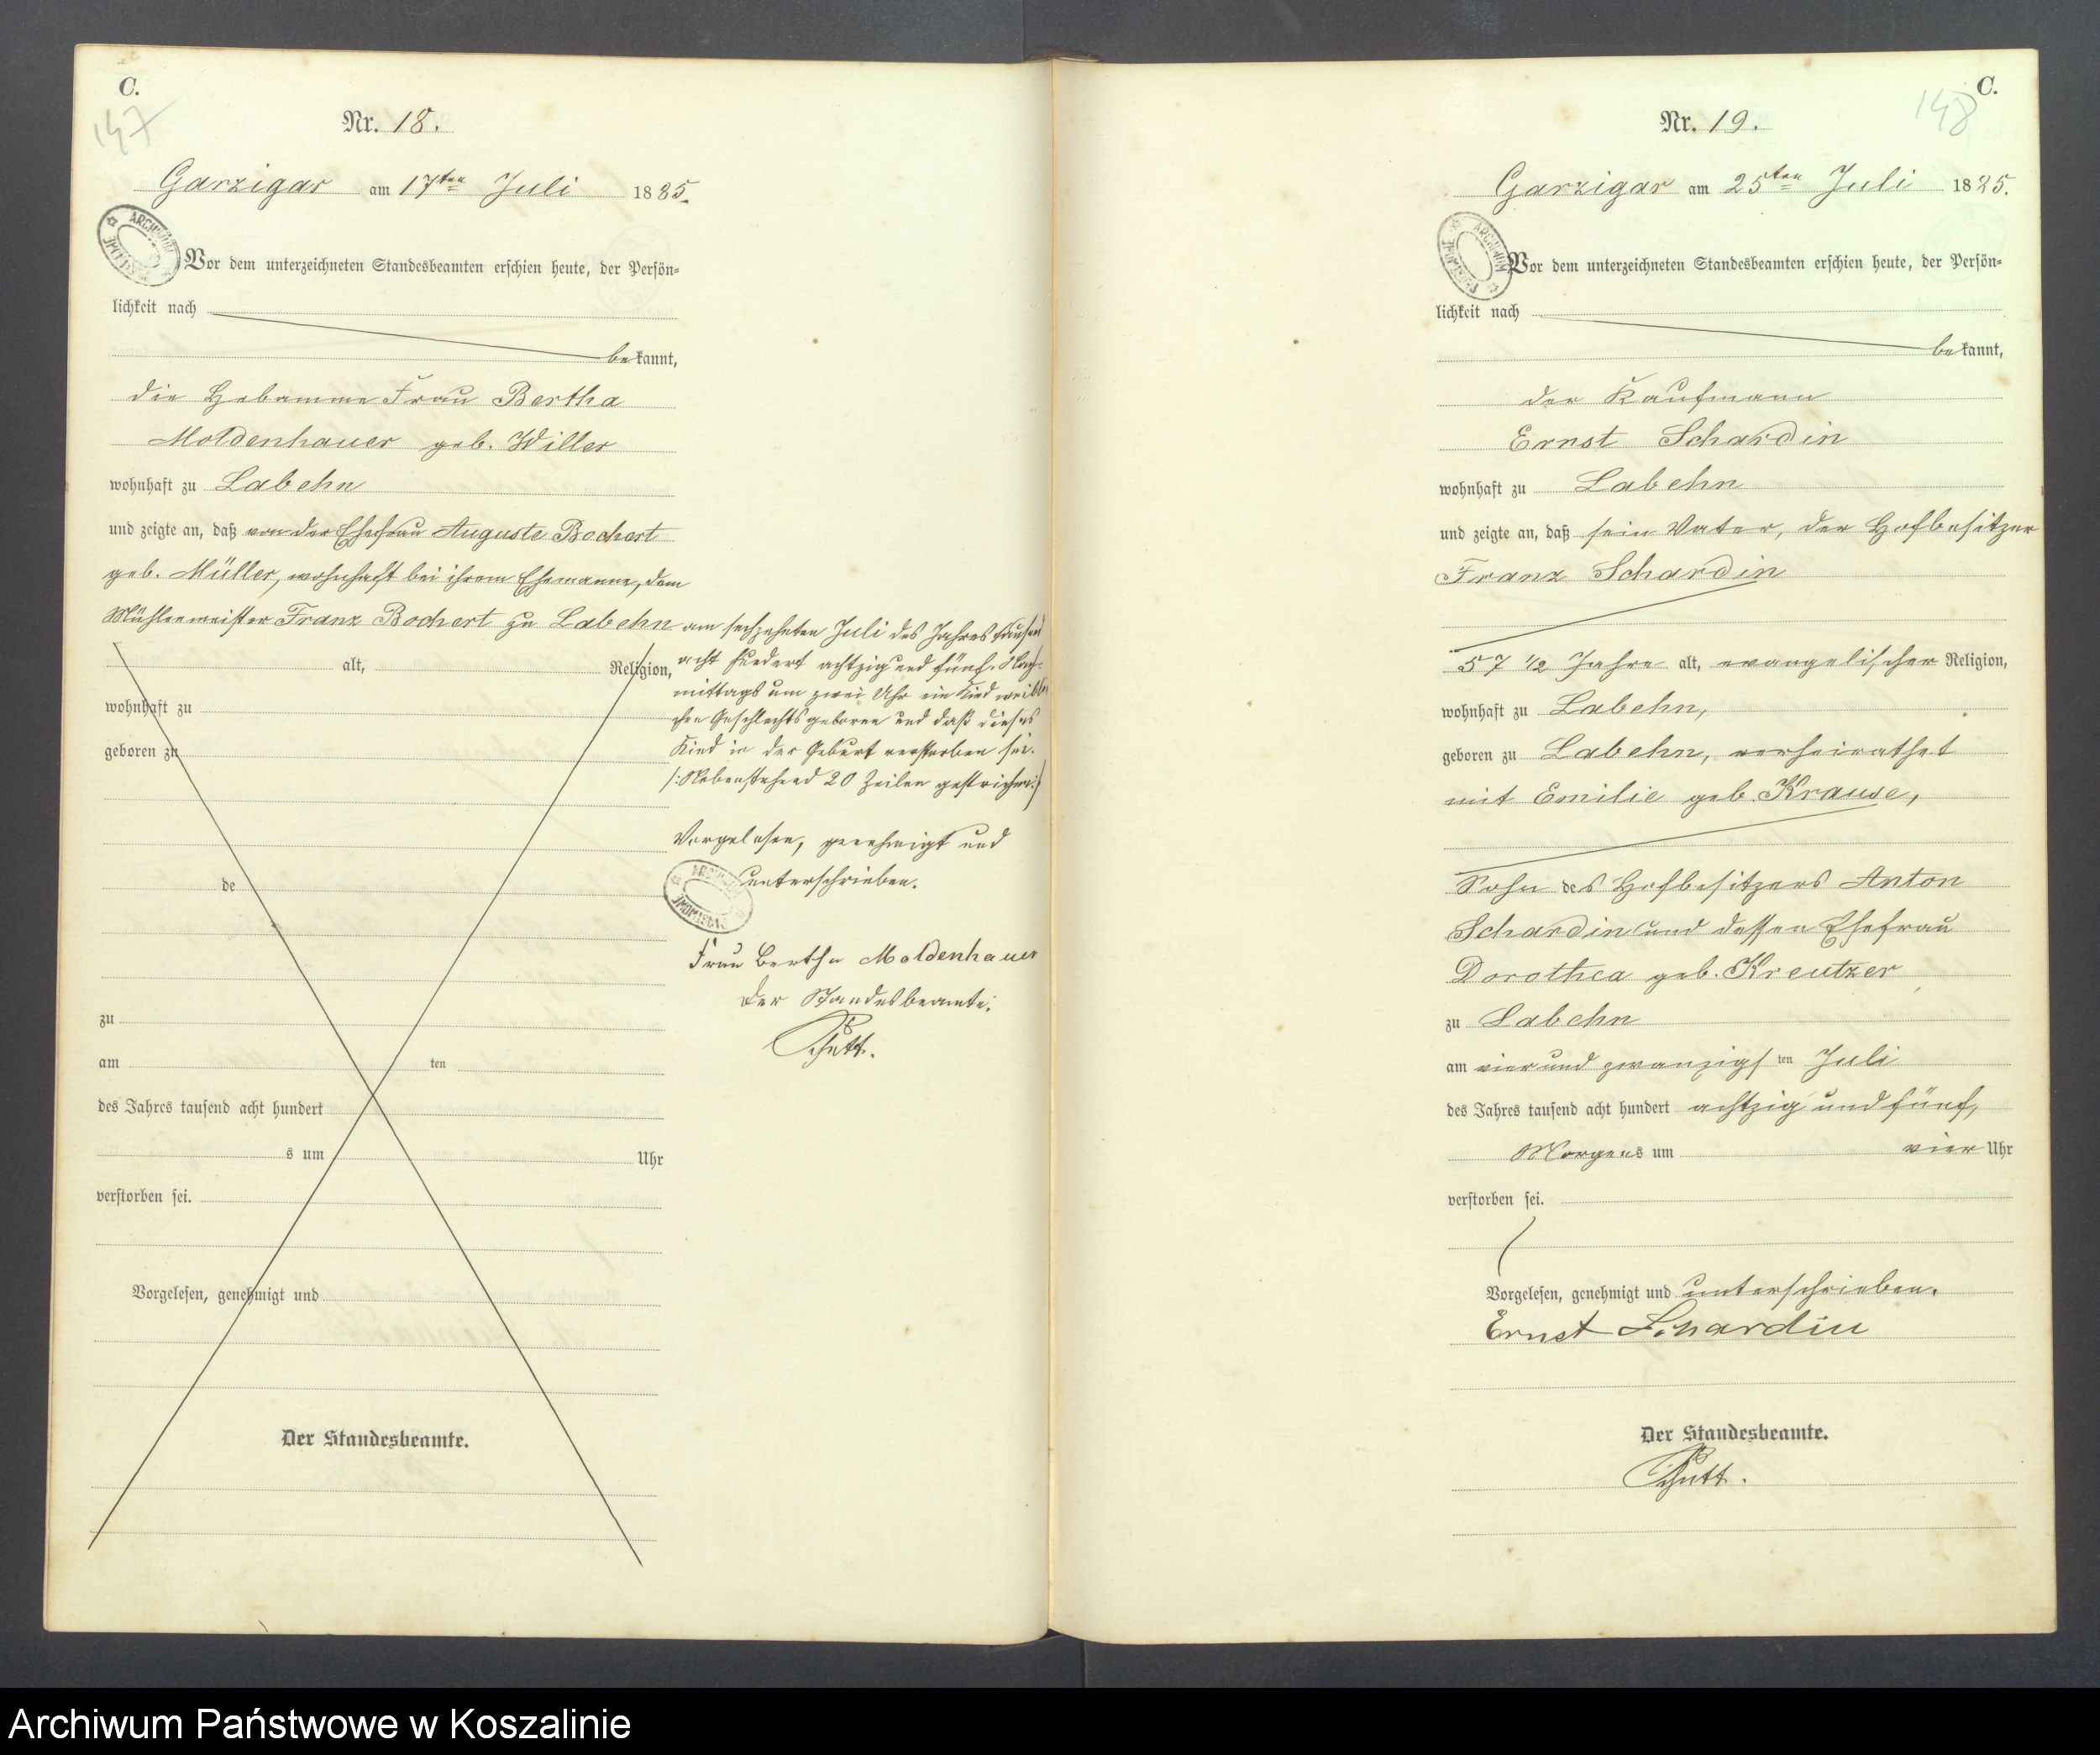 C.
147
Nr. 18.
Garzigar am 17ten Juli 1885.
Vor dem unterzeichneten Standesbeamten erschien heute, der Persön=
lichkeit nach
bekannt,
die Hebamme Frau Bertha
Moldenhauer geb. Willer
wohnhaft zu Labehn
und zeigte an, daß von der Ehefrau Auguste Bochert
geb. Müller, wohnhaft bei ihrem Ehemanne, dem
Mühlenmeister Franz Bochert zu Labehn
alt, Religion,
wohnhaft zu
geboren zu
de
zu
am ten
des Jahres tausend acht hundert
s um Uhr
verstorben sei.
Vorgelesen, genehmigt und
Der Standesbeamte.
am sechzehnten Juli des Jahres tausend
acht hundert achtzig und fünf, Nach-
mittags um zwei Uhr ein Kind weibli-
chen Geschlechts geboren und daß dieses
Kind in der Geburt verstorben sei.
/: Nebenstehend 20 Zeilen gestrichen :/
Vorgelesen, genehmigt und
unterschrieben.
ARCHIWUM
Frau Bertha Moldenhauer
Der Standesbeamte:
C.
148
Nr. 19.
Garzigar am 25ten Juli 1885.
ARCHIWUM
Vor dem unterzeichneten Standesbeamten erschien heute, der Persön=
lichkeit nach
bekannt,
der Kaufmann
Ernst Schardin
wohnhaft zu Labehn
und zeigte an, daß sein Vater, der Hofbesitzer
Franz Schardin
57 1/2 Jahre alt, evangelischer Religion,
wohnhaft zu Labehn,
geboren zu Labehn, verheirathet
mit Emilie geb. Krause,
Sohn des Hofbesitzers Anton
Schardin und dessen Ehefrau
Dorothea geb. Kreutzer
zu Labehn
am vier und zwanzigsten Juli
des Jahres tausend acht hundert achtzig und fünf,
Morgens um vier Uhr
verstorben sei.
Vorgelesen, genehmigt und unterschrieben.
Ernst Schardin
Der Standesbeamte.
Archiwum Państwowe w Koszalinie